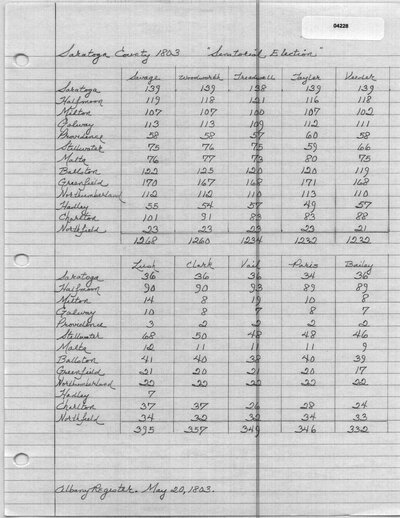 04228
Saratoga County 1803 "Senatorial Election"
Savage Woodworth Treadwell Tayler Veeder
Saratoga 139 139 138 139 139
Halfmoon 119 118 121 116 118
Milton 107 107 100 107 102
Galway 113 113 109 112 111
Providence 58 58 57 60 58
Stillwater 75 76 75 59 66
Malta 76 77 73 80 75
Ballston 122 125 120 120 119
Greenfield 170 167 168 171 168
Northumberland 112 112 110 113 110
Hadley 55 54 57 49 57
Charlton 101 91 83 83 88
Northfield 23 23 23 23 21
1268 1260 1234 1232 1232
Leish Clark Vail Paris Bailey
Saratoga 36 36 36 34 36
Halfmoon 90 90 93 89 89
Milton 14 8 19 10 8
Galway 10 8 7 8 7
Providence 3 2 2 2 2
Stillwater 68 50 48 48 46
Malta 12 11 11 11 9
Ballston 41 40 38 40 39
Greenfield 21 20 21 20 17
Northumberland 22 22 22 22 22
Hadley 7
Charlton 37 37 26 28 24
Northfield 34 32 32 34 33
395 357 349 346 332
Albany Register. May 20, 1803.